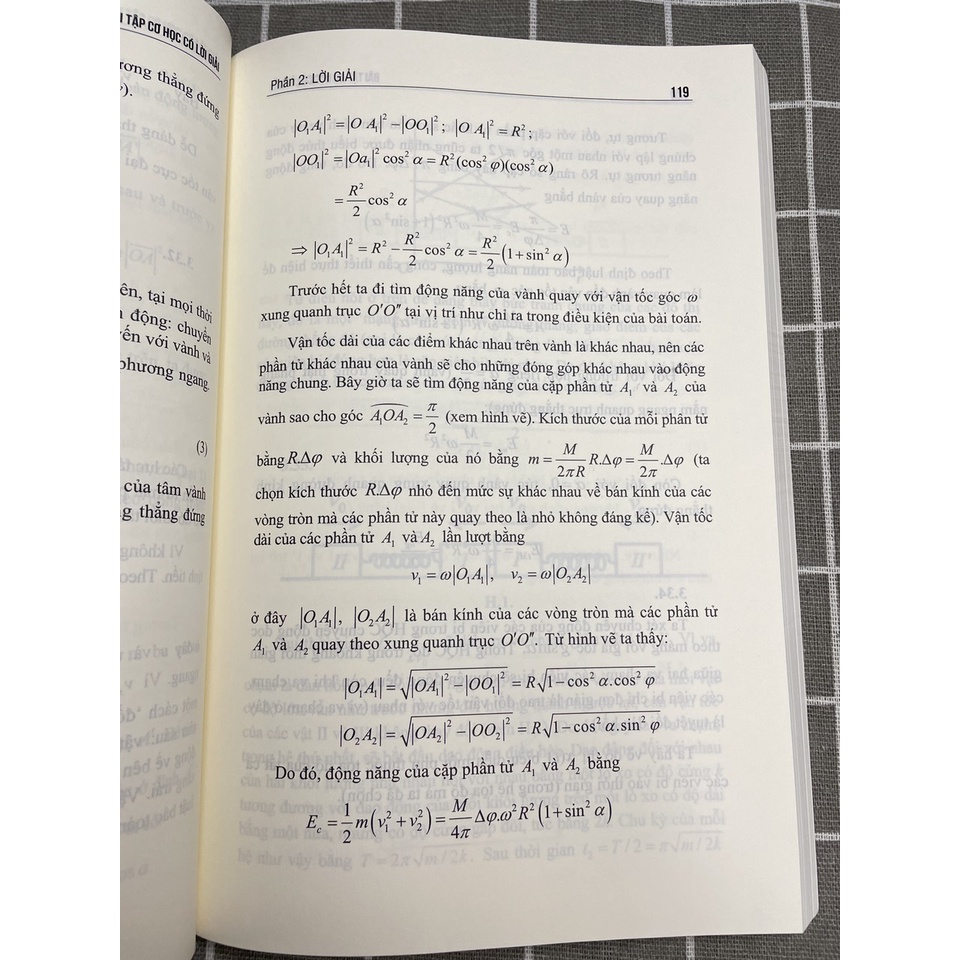 I TẬP CƠ HỌC CÓ LỜI GIẢI
ương thẳng đứng
).
ên, tại mọi thời
động: chuyền
ến với vành và
phương ngang.
(3)
của tâm vành
g thẳng đứng
Phần 2: LỜI GIẢI
119
|O₁A₁|² = |O A₁|² − |OO₁|²; |O A₁|² = R²;
|OO₁|² = |Oa₁|² cos² α = R² (cos² φ)(cos² α)
= R²/2 cos² α
⇒ |O₁A₁|² = R² − R²/2 cos² α = R²/2 (1 + sin² α)
Trước hết ta đi tìm động năng của vành quay với vận tốc góc ω
xung quanh trục O'O" tại vị trí như chỉ ra trong điều kiện của bài toán.
Vận tốc dài của các điểm khác nhau trên vành là khác nhau, nên các
phần tử khác nhau của vành sẽ cho những đóng góp khác nhau vào động
năng chung. Bây giờ ta sẽ tìm động năng của cặp phần tử A₁ và A₂ của
vành sao cho góc A₁OA₂ = π/2 (xem hình vẽ). Kích thước của mỗi phần tử
bằng R.Δφ và khối lượng của nó bằng m = M/2πR R.Δφ = M/2π .Δφ (ta
chọn kích thước R.Δφ nhỏ đến mức sự khác nhau về bán kính của các
vòng tròn mà các phần tử này quay theo là nhỏ không đáng kể). Vận tốc
dài của các phần tử A₁ và A₂ lần lượt bằng
v₁ = ω|O₁A₁|, v₂ = ω|O₂A₂|
ở đây |O₁A₁|, |O₂A₂| là bán kính của các vòng tròn mà các phần tử
A₁ và A₂ quay theo xung quanh trục O'O". Từ hình vẽ ta thấy:
|O₁A₁| = √(|OA₁|² − |OO₁|²) = R√(1 − cos² α.cos² φ)
|O₂A₂| = √(|OA₂|² − |OO₂|²) = R√(1 − cos² α.sin² φ)
Do đó, động năng của cặp phần tử A₁ và A₂ bằng
E_c = 1/2 m(v₁² + v₂²) = M/4π Δφ.ω²R² (1 + sin² α)